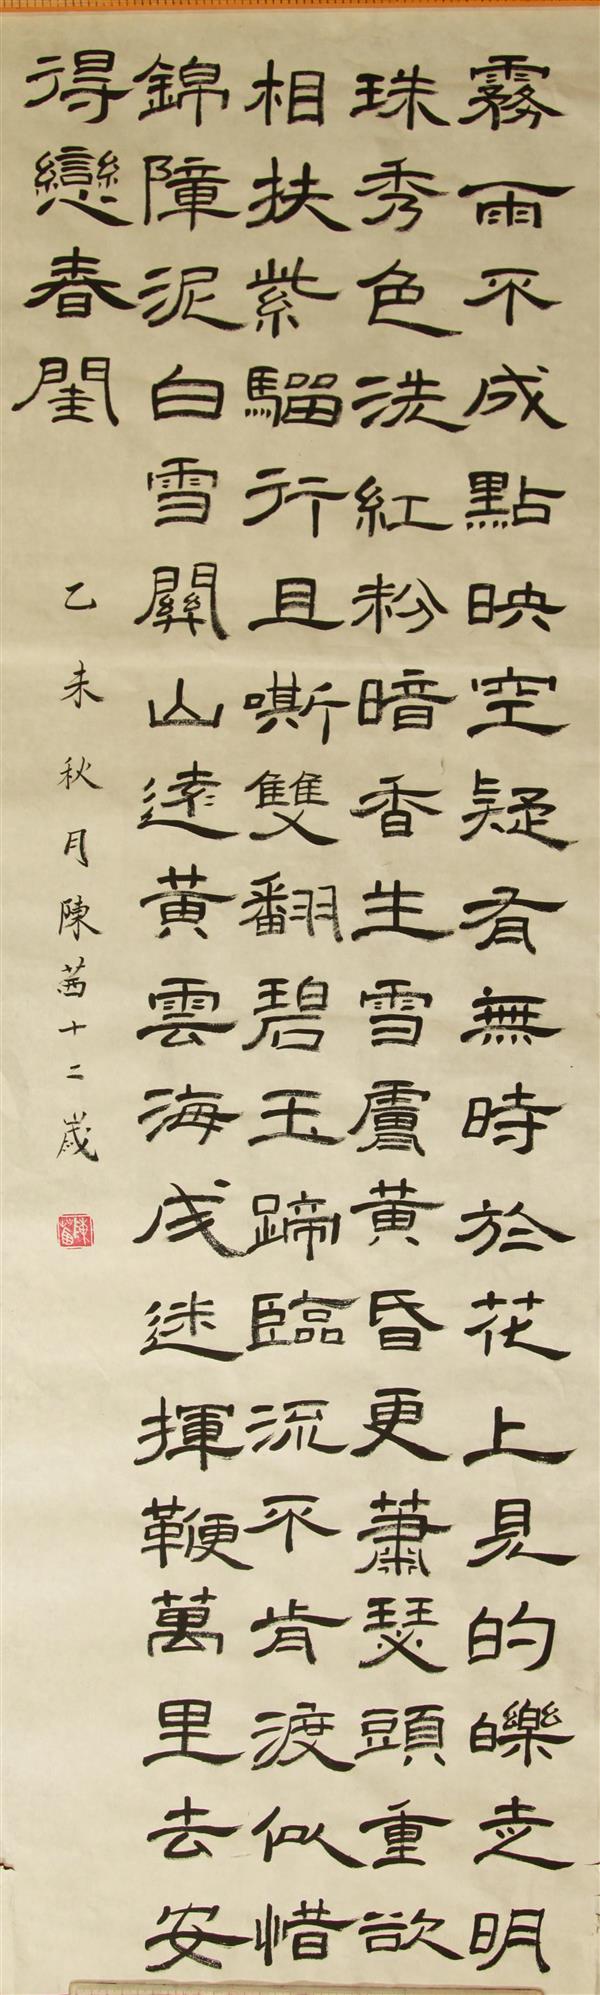 霧雨不成點映空疑有無時於花上見的皪走明
珠秀色洗紅粉暗香生雪膚黃昏更蕭瑟頭重欲
相扶紫騮行且嘶雙翻碧玉蹄臨流不肯渡似惜
錦障泥白雪關山遠黃雲海戍迷揮鞭萬里去安
得戀春閨
乙未秋月陳茜十二歲
陳茜